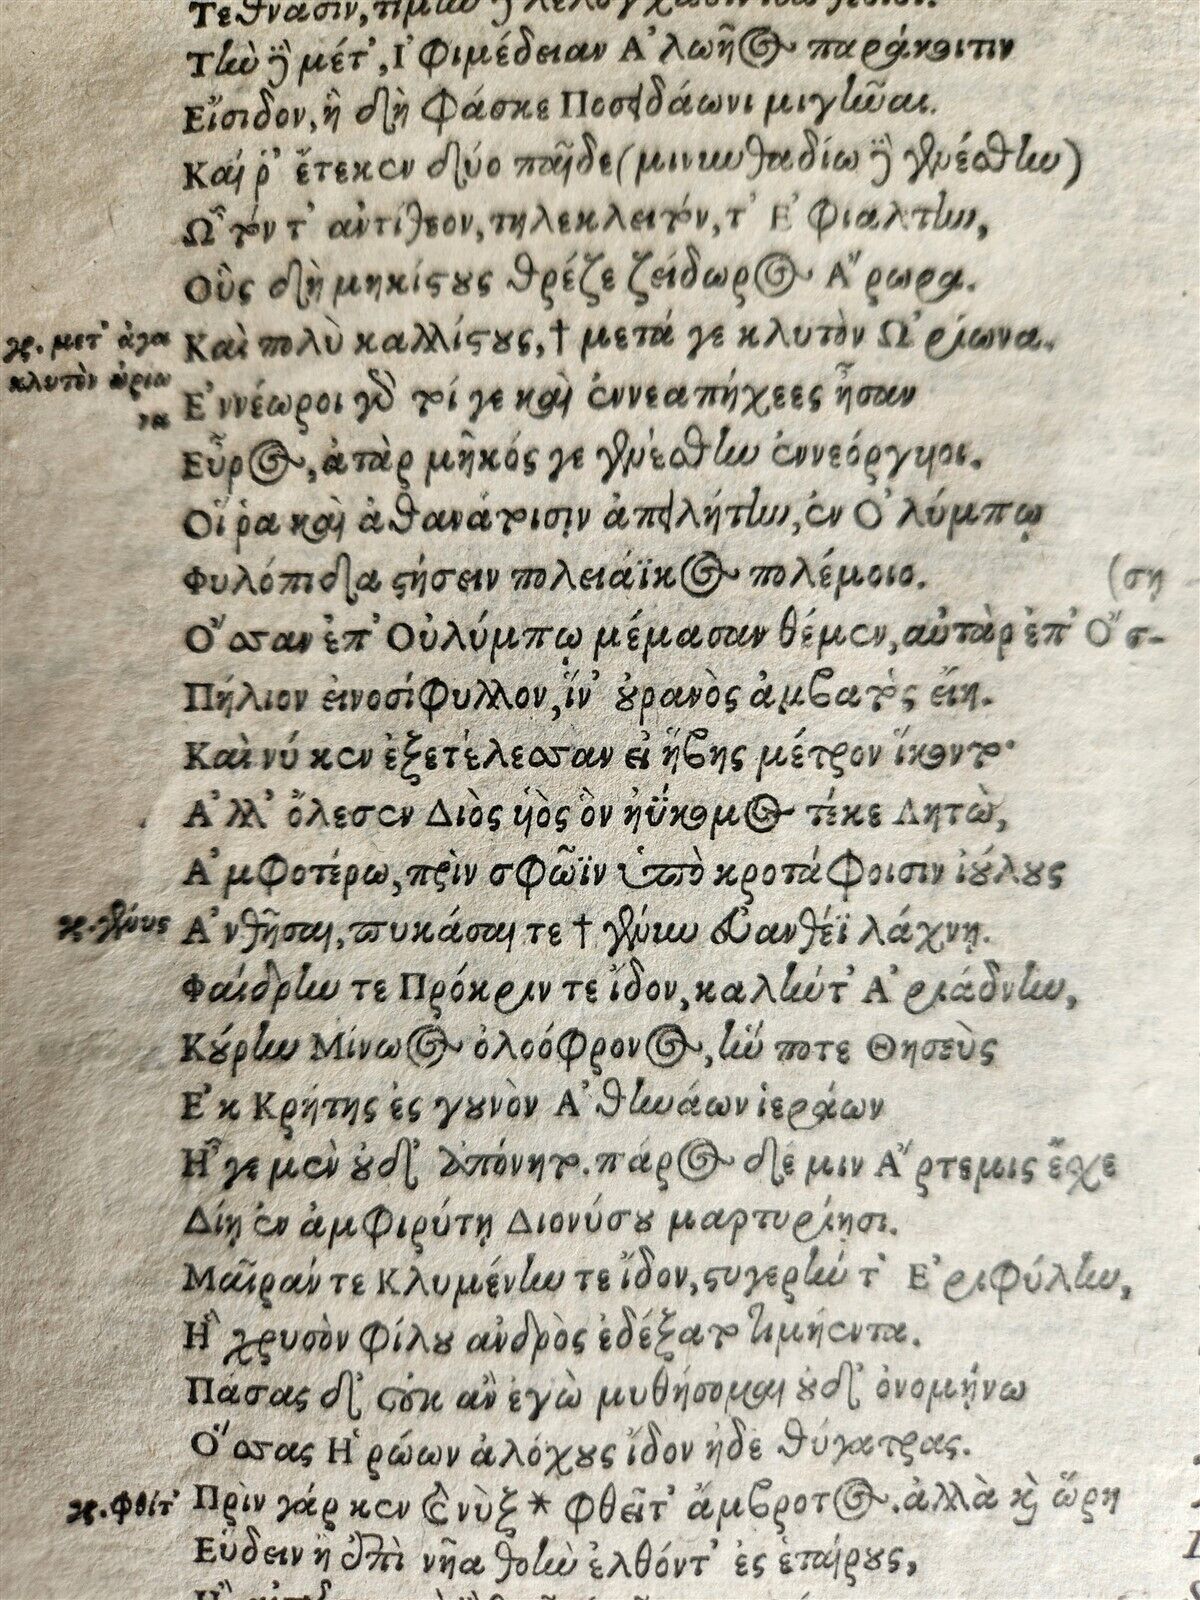 Τεθνᾶσιν, τιμὴν δὲ λελόγχασιν
Τὴν δὲ μέτ', Ἰφιμέδειαν Ἀλωῆος παράκοιτιν
Εἴσιδον, ἣ δὴ φάσκε Ποσειδάωνι μιγῆναι.
Καί ῥ' ἔτεκεν δύο παῖδε (μινυνθαδίω δὲ γενέσθην)
Ὦτόν τ' ἀντίθεον, τηλεκλειτόν, τ' Ἐφιάλτην,
Οὓς δὴ μηκίστους θρέψε ζείδωρος Ἄρουρα.
γρ. μετ' ἀγα Καὶ πολὺ καλλίστους, † μετά γε κλυτὸν Ὠρίωνα.
κλυτὸν ὠρίω
να Ἐννέωροι γὰρ τοί γε καὶ ἐννεαπήχεες ἦσαν
Εὖρος, ἀτὰρ μῆκός γε γενέσθην ἐννεόργυιοι.
Οἵ ῥα καὶ ἀθανάτοισιν ἀπειλήτην, ἐν Ὀλύμπῳ
Φυλόπιδα στήσειν πολυάϊκος πολέμοιο. (ση
Ὄσσαν ἐπ' Οὐλύμπῳ μέμασαν θέμεν, αὐτὰρ ἐπ' Ὄσ-
Πήλιον εἰνοσίφυλλον, ἵν' οὐρανὸς ἀμβατὸς εἴη.
Καὶ νύ κεν ἐξετέλεσσαν εἰ ἥβης μέτρον ἵκοντο·
Ἀλλ' ὄλεσεν Διὸς υἱὸς ὃν ἠΰκομος τέκε Λητὼ,
Ἀμφοτέρω, πρὶν σφῶϊν ὑπὸ κροτάφοισιν ἰούλους
γρ. γένυς Ἀνθῆσαι, πυκάσαι τε † γένυν εὐανθέϊ λάχνῃ.
Φαίδρην τε Πρόκριν τε ἴδον, καλήν τ' Ἀριάδνην,
Κούρην Μίνωος ὀλοόφρονος, ἥν ποτε Θησεὺς
Ἐκ Κρήτης ἐς γουνὸν Ἀθηνάων ἱεράων
Ἦγε μὲν οὐδ' ἀπόνητο. πάρος δέ μιν Ἄρτεμις ἔσχε
Δίῃ ἐν ἀμφιρύτῃ Διονύσου μαρτυρίῃσι.
Μαῖράν τε Κλυμένην τε ἴδον, στυγερήν τ' Ἐριφύλην,
Ἣ χρυσὸν φίλου ἀνδρὸς ἐδέξατο τιμήεντα.
Πάσας δ' οὐκ ἂν ἐγὼ μυθήσομαι οὐδ' ὀνομήνω
Ὅσσας Ἡρώων ἀλόχους ἴδον ἠδὲ θύγατρας.
γρ. φθίτ' Πρὶν γάρ κεν καὶ νὺξ * φθεῖτ' ἄμβροτος. ἀλλὰ καὶ ὥρη
Εὕδειν ἢ ἐπὶ νῆα θοὴν ἐλθόντ' ἐς ἑταίρους,